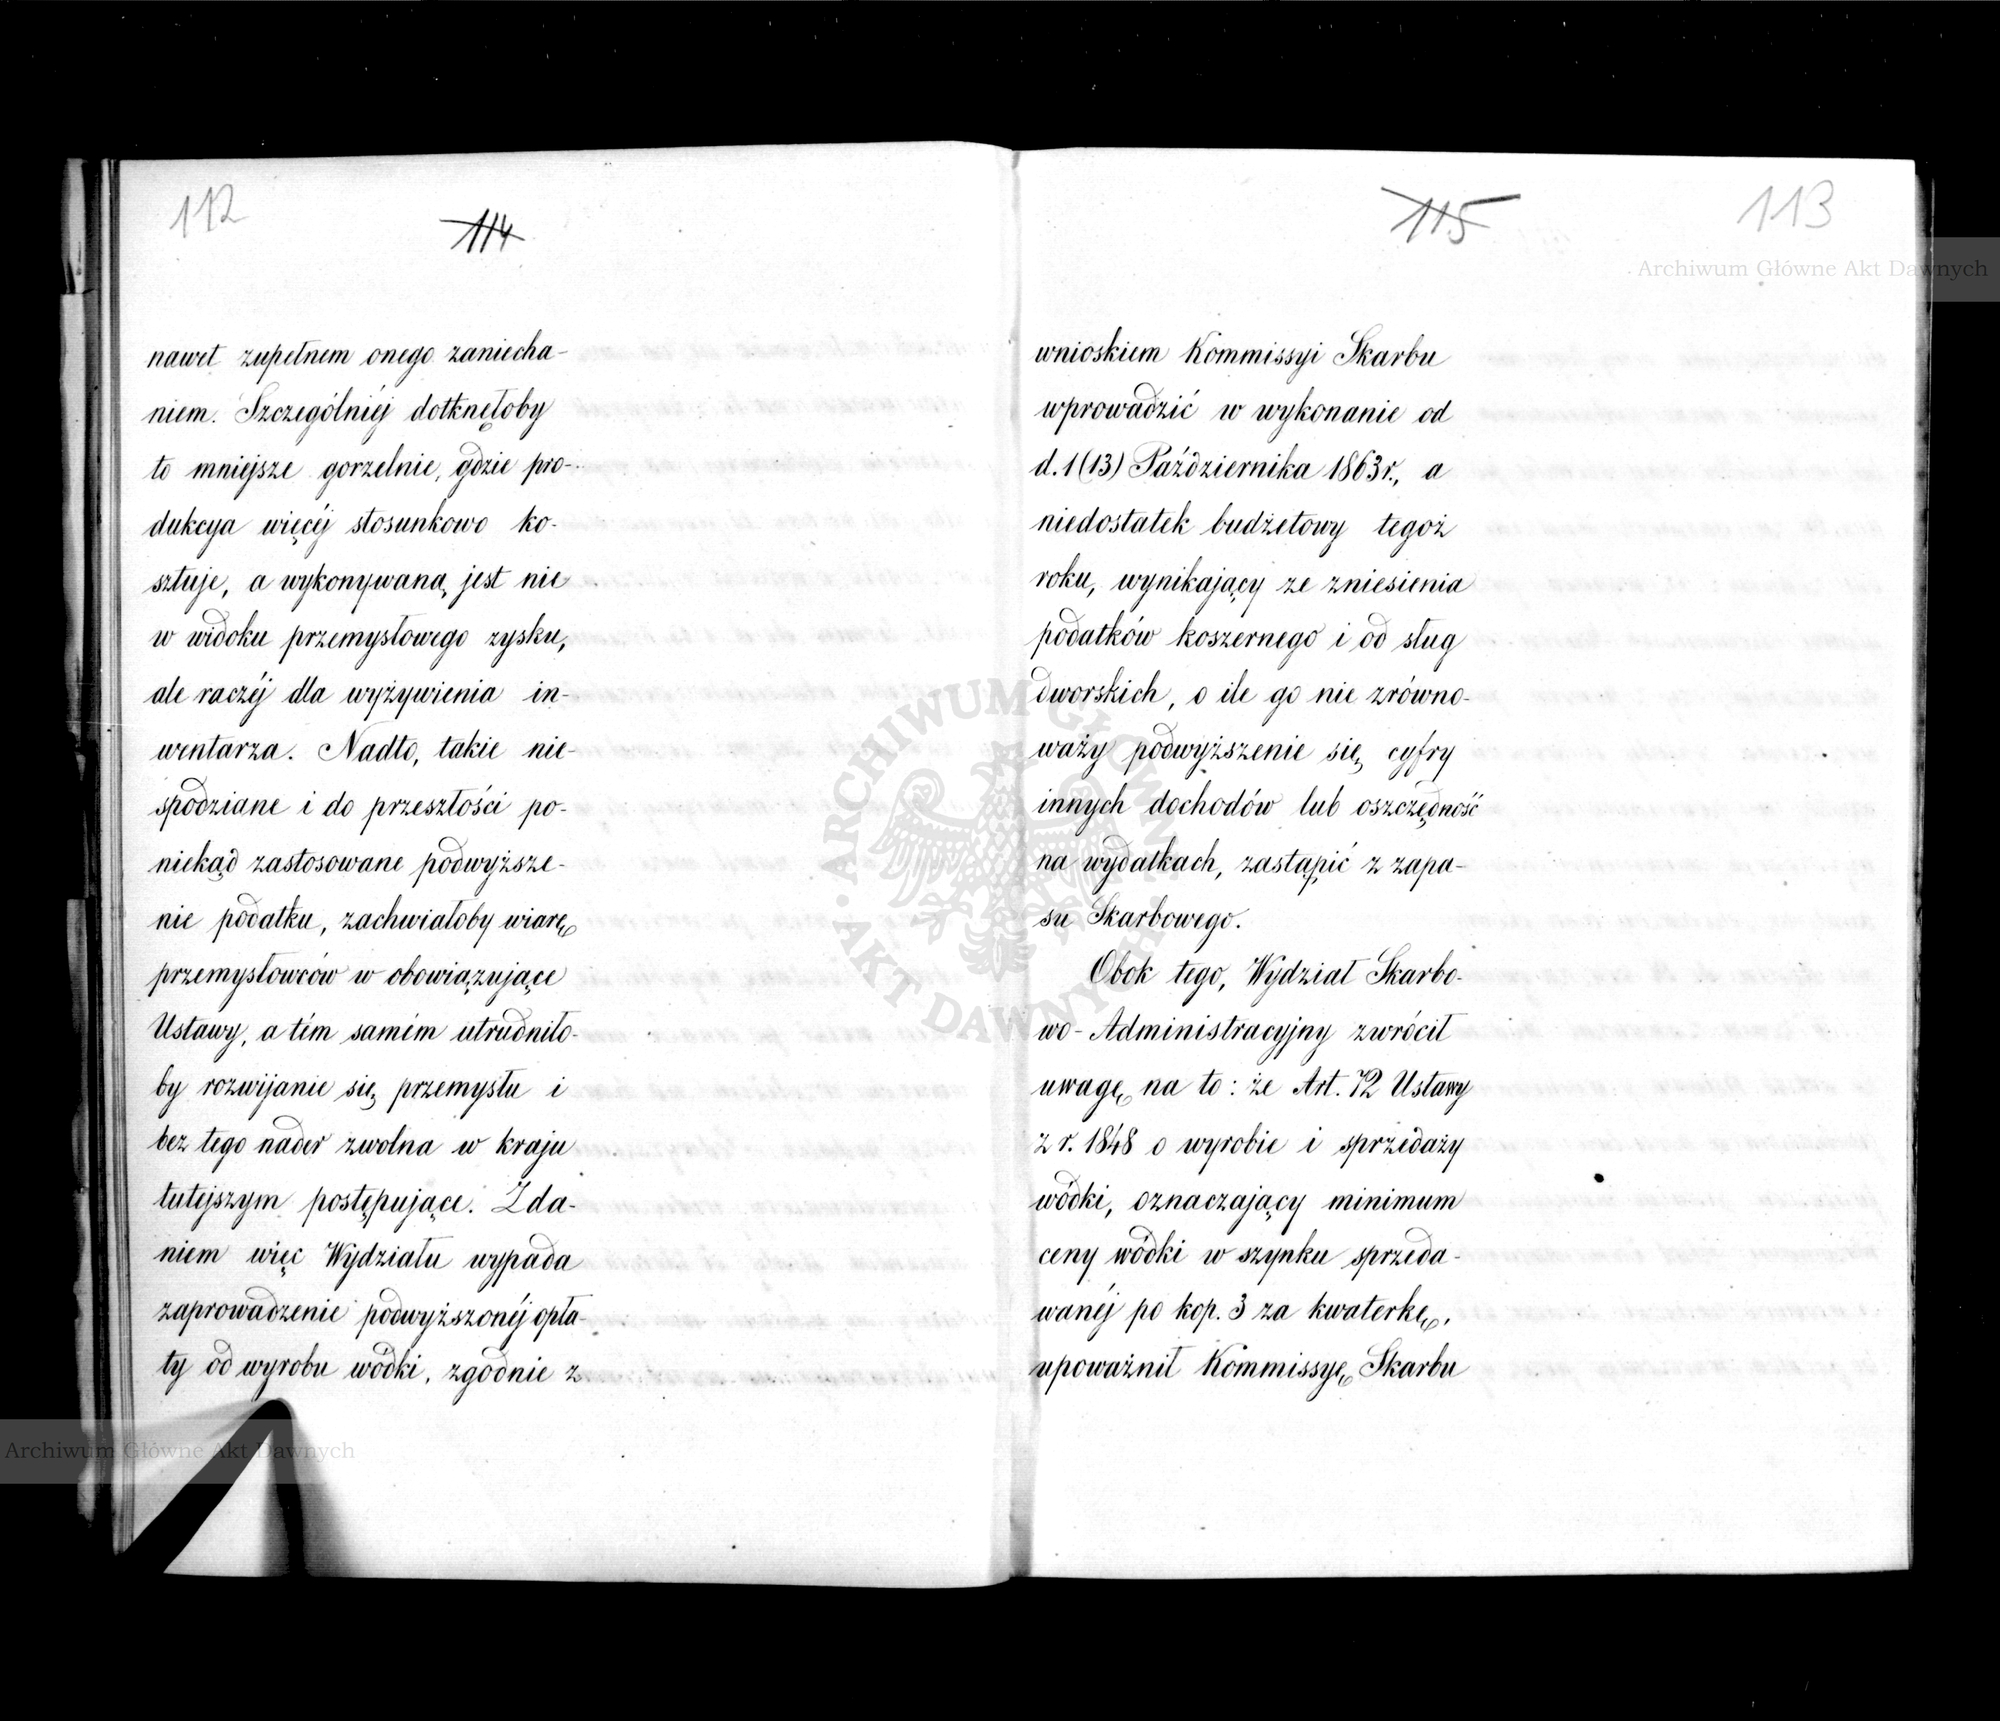 112
114
nawet zupełnem onego zaniecha-
niem. Szczególniéj dotknęłoby
to mniejsze gorzelnie, gdzie pro-
dukcya więcéj stosunkowo ko-
sztuje, a wykonywaną jest nie
w widoku przemysłowego zysku,
ale raczéj dla wyżywienia in-
wentarza. Nadto, takie nie-
spodziane i do przeszłości po-
niekąd zastosowane podwyższe-
nie podatku, zachwiałoby wiarę
przemysłowców w obowiązujące
Ustawy, a tém samém utrudniło-
by rozwijanie się przemysłu i
bez tego nader zwolna w kraju
tutejszym postępujące. Zda-
niem więc Wydziału wypada
zaprowadzenie podwyższonéj opła-
ty od wyrobu wódki, zgodnie z
115
113
wnioskiem Kommissyi Skarbu
wprowadzić w wykonanie od
d. 1 (13) Października 1863 r., a
niedostatek budżetowy tegoż
roku, wynikający ze zniesienia
podatków koszernego i od sług
dworskich, o ile go nie zrówno-
waży podwyższenie się cyfry
innych dochodów lub oszczędność
na wydatkach, zastąpić z zapa-
su Skarbowego.
Obok tego, Wydział Skarbo-
wo-Administracyjny zwrócił
uwagę na to: że Art. 72 Ustawy
z r. 1848 o wyrobie i sprzedaży
wódki, oznaczający minimum
ceny wódki w szynku sprzeda-
wanéj po kop. 3 za kwaterkę,
upoważnił Kommissyę Skarbu
Archiwum Główne Akt Dawnych
Archiwum Główne Akt Dawnych
ARCHIWUM GŁÓWNE AKT DAWNYCH